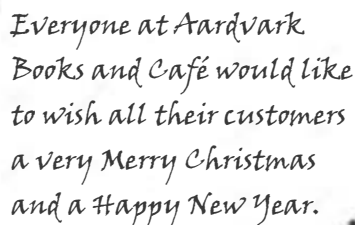 Everyone at Aardvark
Books and Café would like
to wish all their customers
a very Merry Christmas
and a Happy New Year.